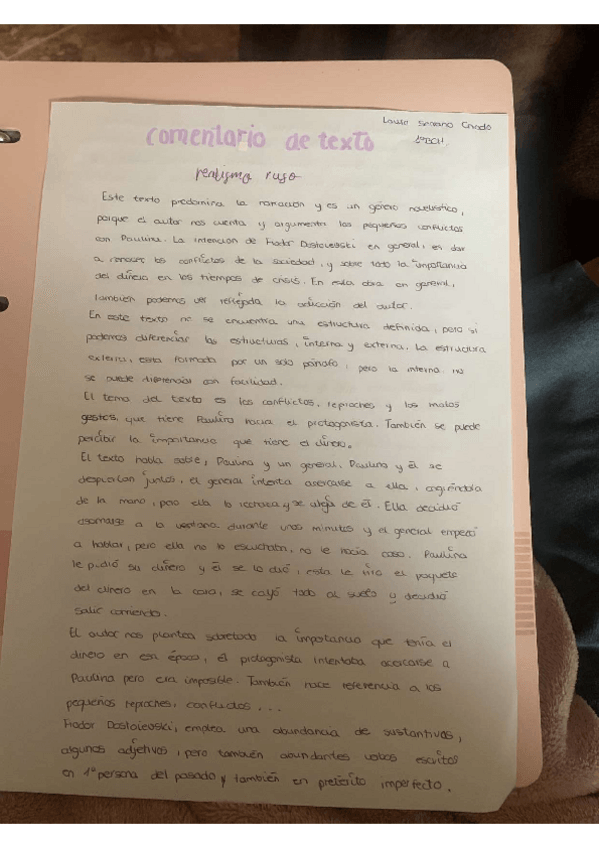 Laura Serrano Criado
1ºBCH.
comentario de texto
realismo ruso
Este texto predomina la narración y es un género novelístico,
porque el autor nos cuenta y argumenta los pequeños conflictos
con Paulina. La intención de Fiódor Dostoievski en general, es dar
a conocer los conflictos de la sociedad, y sobre todo la importancia
del dinero en los tiempos de crisis. En esta obra en general,
también podemos ver reflejada la adicción del autor.
En este texto no se encuentra una estructura definida, pero si
podemos diferenciar las estructuras, interna y externa. La estructura
externa, esta formada por un solo párrafo, pero la interna no
se puede diferenciar con facilidad.
El tema del texto es los conflictos, reproches y los malos
gestos, que tiene Paulina hacia el protagonista. También se puede
percibir la importancia que tiene el dinero.
El texto habla sobre, Paulina y un general. Paulina y él se
despiertan juntos, el general intenta acercarse a ella, cogiéndola
de la mano, pero ella lo rechaza y se aleja de él. Ella decidió
asomarse a la ventana durante unos minutos y el general empezó
a hablar, pero ella no lo escuchaba, no le hacía caso. Paulina
le pidió su dinero y él se lo dió, esta le tiro el paquete
del dinero en la cara, se cayó todo al suelo y decidió
salir corriendo.
El autor nos plantea sobretodo la importancia que tenía el
dinero en esa época, el protagonista intentaba acercarse a
Paulina pero era imposible. También hace referencia a los
pequeños reproches, conflictos ...
Fiador Dostoievski, emplea una abundancia de sustantivos,
algunos adjetivos, pero también abundantes verbos escritos
en 1ª persona del pasado y también en pretérito imperfecto.